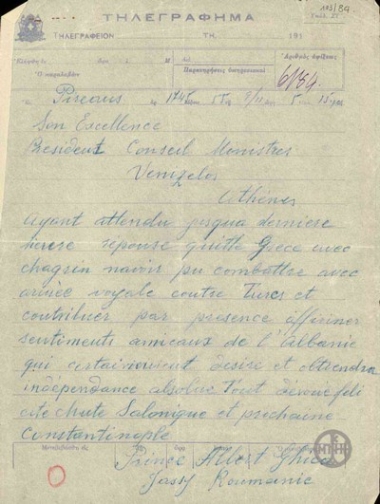 103/84
ΤΗΛΕΓΡΑΦΗΜΑ
ΤΗΛΕΓΡΑΦΕΙΟΝ ΤΗ, 191
Ὁ παραλαβὼν
Παρατηρήσεις ὑπηρεσιακαί
Ἀριθμὸς ἀφίξεως
6154
Pireous 1745 55 9/11 5 15
Son Excellence
President Conseil Ministres
Venizelos
Athènes
Ayant attendu jusqua derniere
heure reponse quitte Grèce avec
chagrin navoir pu combattre avec
armée royale contre Turcs et
contribuer par presence affirmer
sentiments amicaux de l'Albanie
qui certainement desire et obtiendra
independance absolue Tout dévoué feli
cite chute Salonique et prochaine
Constantinople
Prince Albert Ghica
Jassy Roumanie